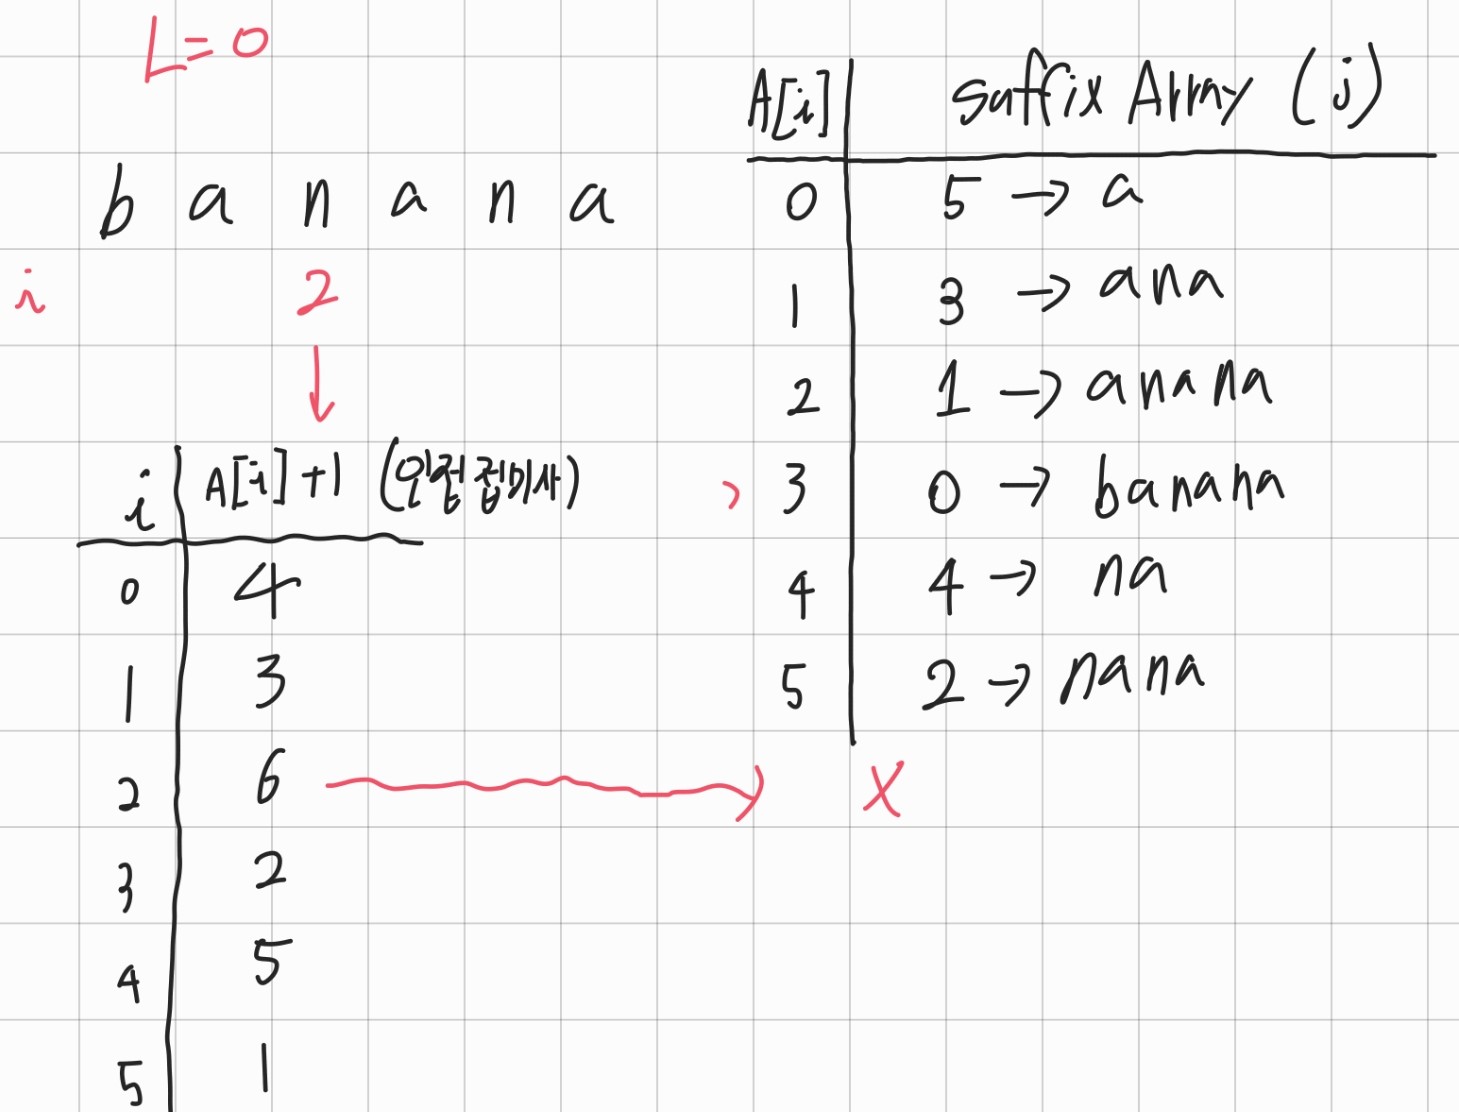 L=0
b a n a n a
i 2
i A[i]+1 (인접접미사)
0 4
1 3
2 6 → X
3 2
4 5
5 1
A[i] Suffix Array (j)
0 5 → a
1 3 → ana
2 1 → anana
3 0 → banana
4 4 → na
5 2 → nana